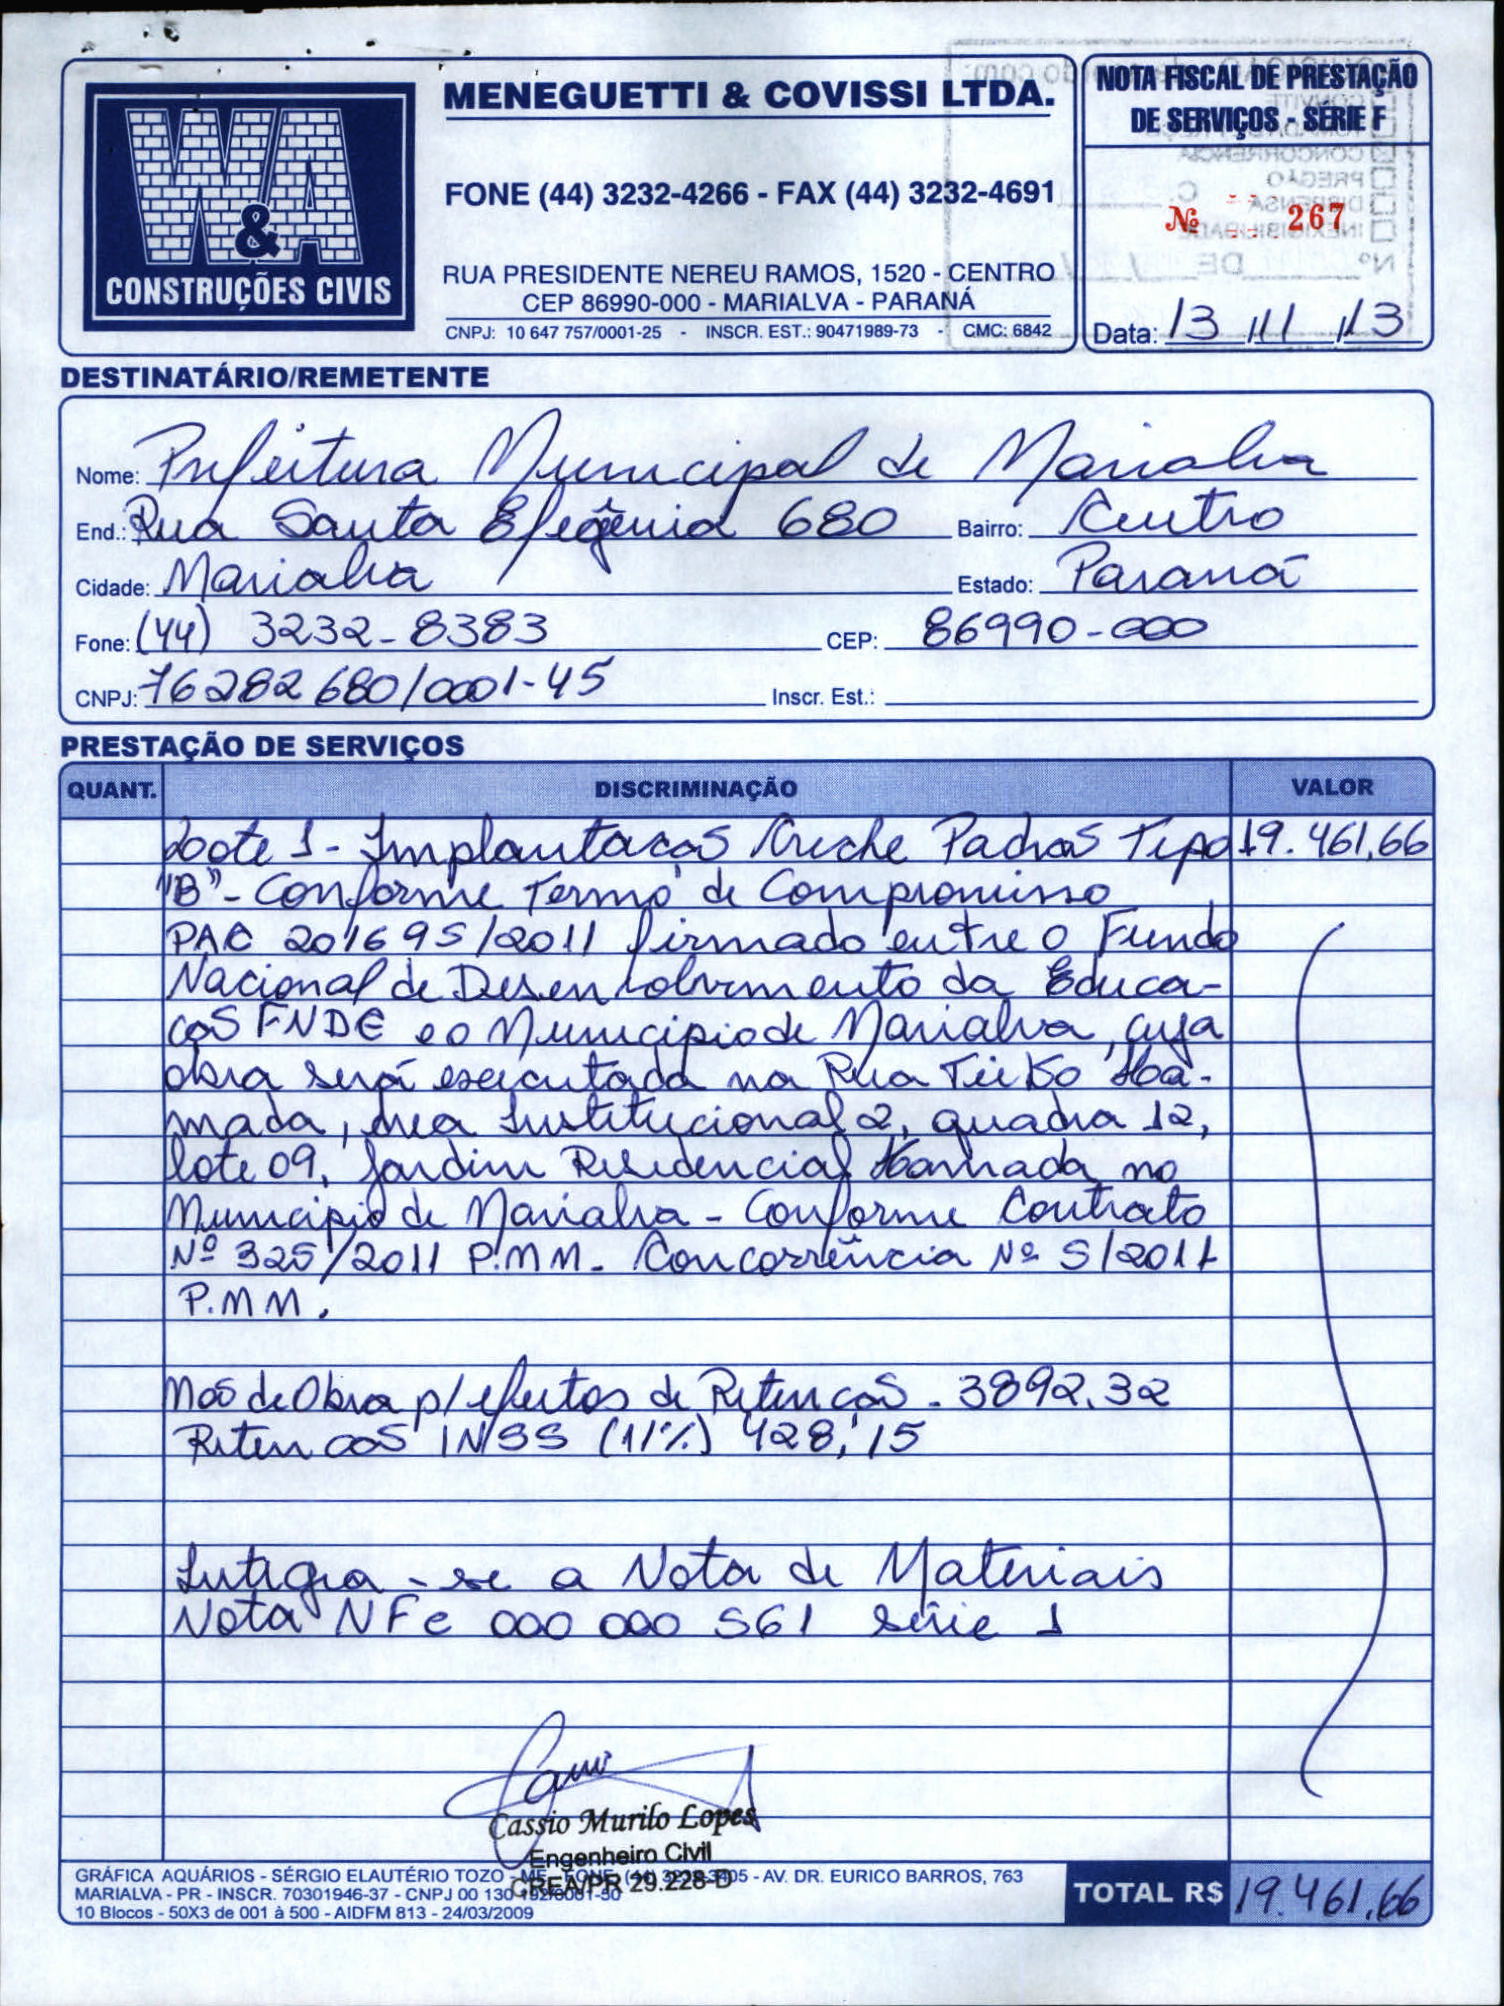 W&A
CONSTRUÇÕES CIVIS
MENEGUETTI & COVISSI LTDA.
FONE (44) 3232-4266 - FAX (44) 3232-4691
RUA PRESIDENTE NEREU RAMOS, 1520 - CENTRO
CEP 86990-000 - MARIALVA - PARANÁ
CNPJ: 10 647 757/0001-25 - INSCR. EST.: 90471989-73 - CMC: 6842
NOTA FISCAL DE PRESTAÇÃO
DE SERVIÇOS - SÉRIE F
CONCORRÊNCIA
PREGÃO
DISPENSA
INEXIGIBILIDADE
Nº 267
Nº DE / /
Data: 13/11/13
DESTINATÁRIO/REMETENTE
Nome: Prefeitura Municipal de Marialva
End.: Rua Santa Efegênia 680 Bairro: Centro
Cidade: Marialva Estado: Paraná
Fone: (44) 3232-8383 CEP: 86990-000
CNPJ: 76282680/0001-45 Inscr. Est.:
PRESTAÇÃO DE SERVIÇOS
QUANT. DISCRIMINAÇÃO VALOR
Lote 1 - Implantacao Creche Padrao Tipo 19.461,66
"B" - Conforme Termo de Compromisso
PAC 201695/2011 firmado entre o Fundo
Nacional de Desenvolvimento da Educa-
cao FNDE e o Municipio de Marialva, cuja
obra será executada na Rua Teiko Ha-
mada, área Institucional 2, quadra 12,
lote 09, Jardim Residencial Hamada no
Municipio de Marialva - Conforme Contrato
Nº 325/2011 P.M.M. Concorrência Nº 5/2011
P.M.M.
Mao de Obra p/ efeitos de Retencao - 3892,32
Retencao INSS (11%) 428,15
Integra-se a Nota de Materiais
Nota NFe 000 000 561 série 1
Cassio Murilo Lopes
Engenheiro Civil
CREA/PR 29.228-D
GRÁFICA AQUÁRIOS - SÉRGIO ELAUTÉRIO TOZO - ME - FONE (44) - AV. DR. EURICO BARROS, 763
MARIALVA - PR - INSCR. 70301946-37 - CNPJ 00 130
10 Blocos - 50X3 de 001 à 500 - AIDFM 813 - 24/03/2009
TOTAL R$ 19.461,66